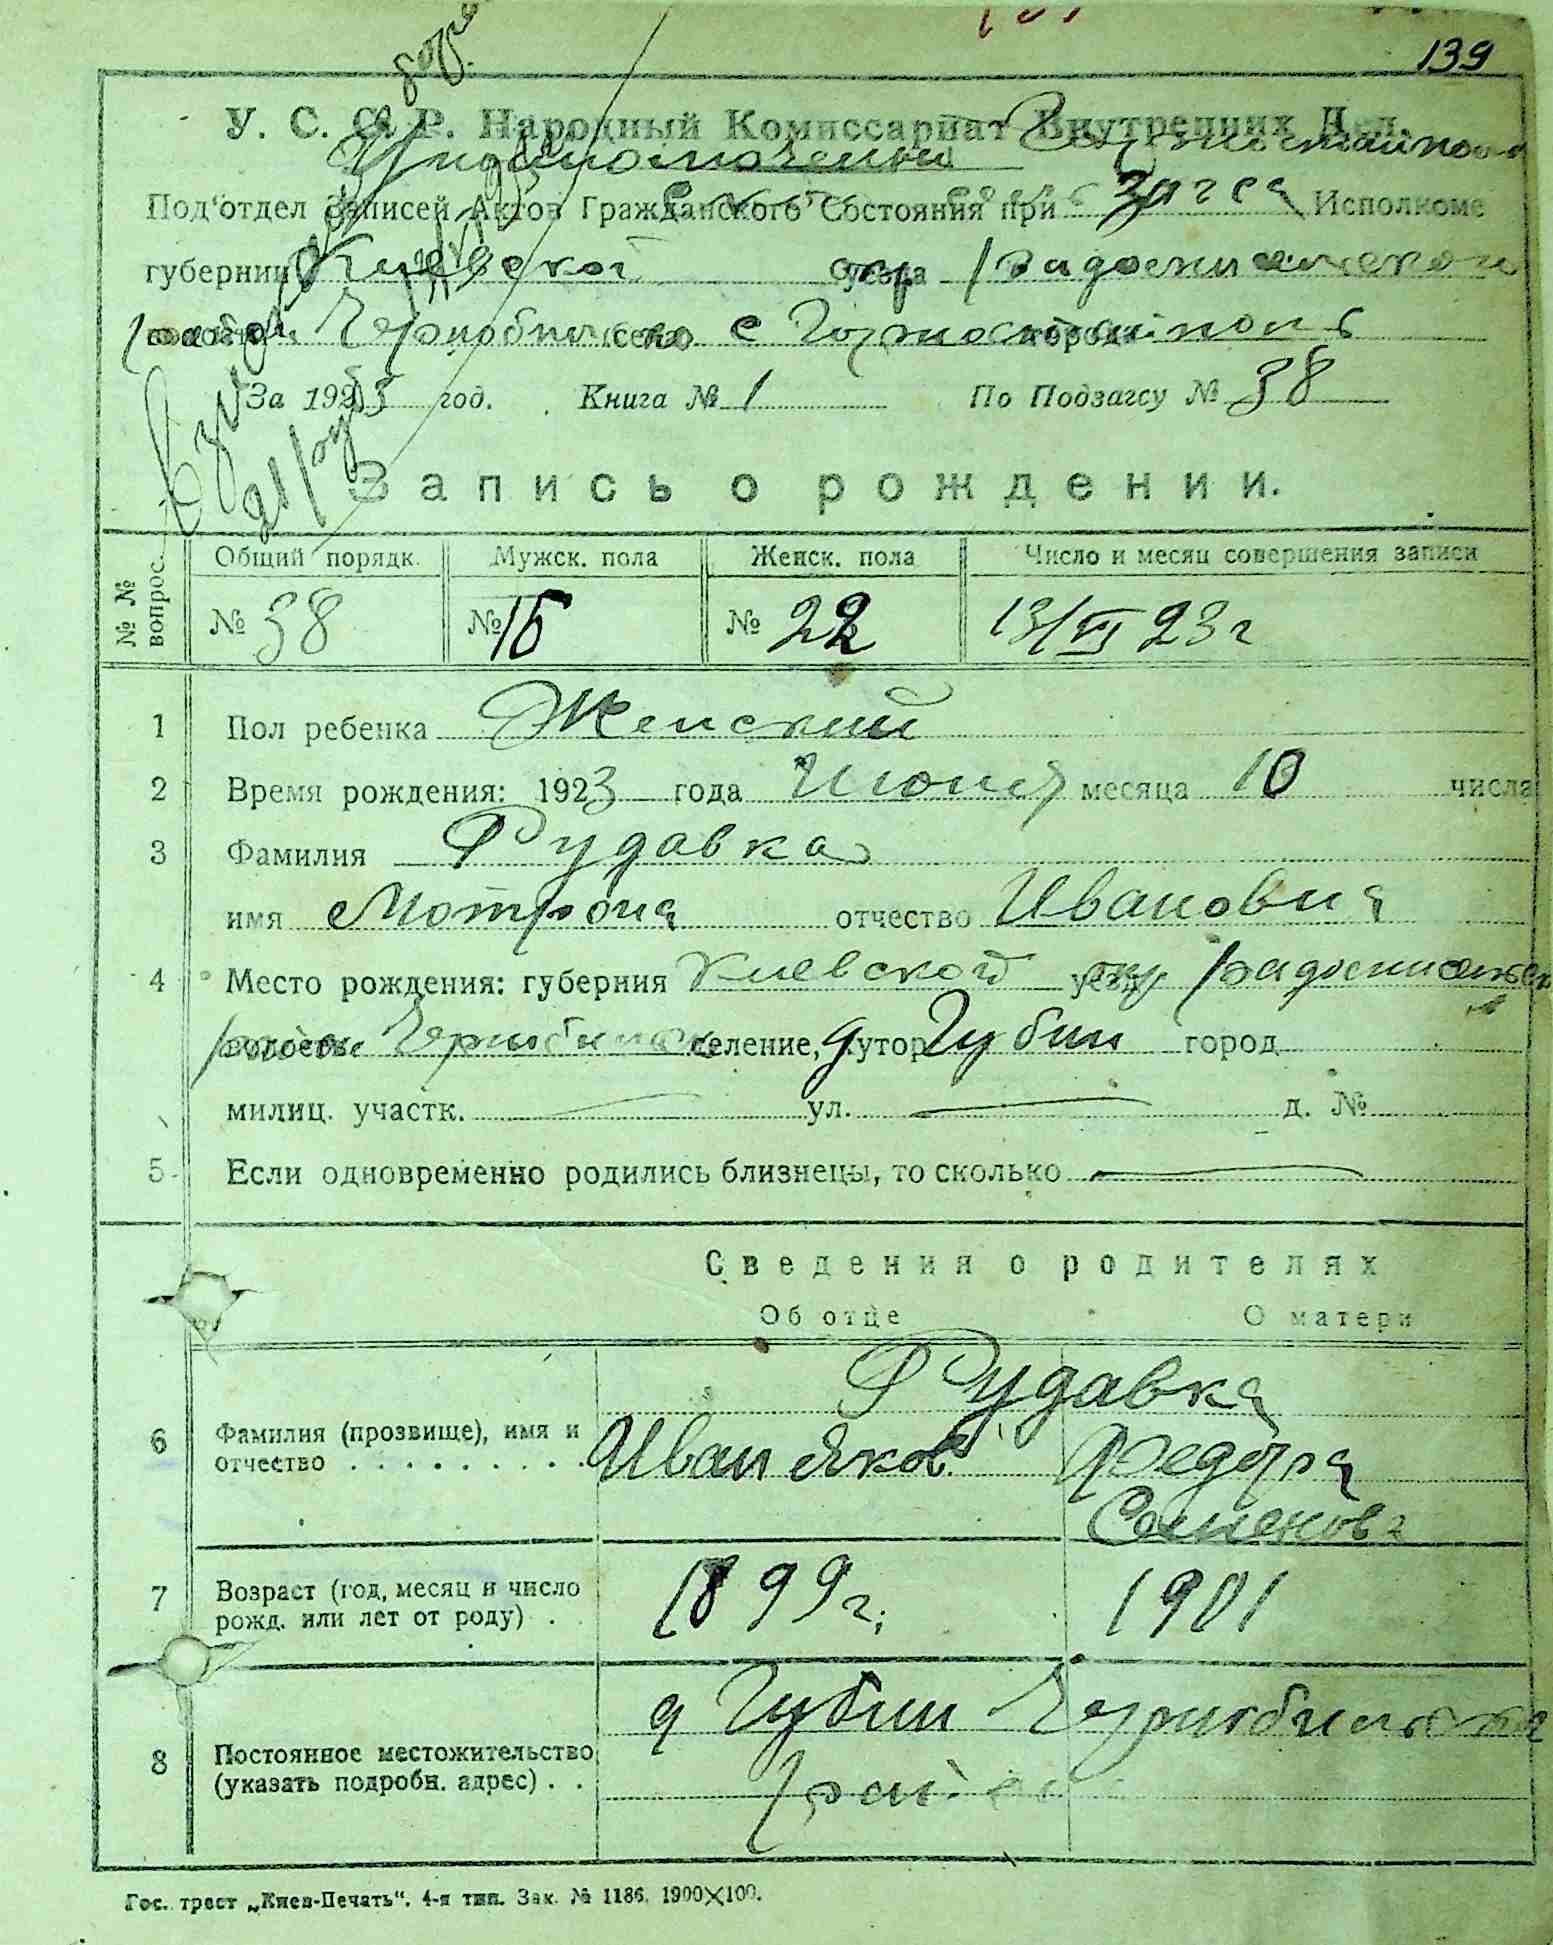 139
У. С. С. Р. Народный Комиссариат Внутренних Дел.
Под'отдел Записей Актов Гражданского Состояния при Загса Исполкоме
губернии Киевской уезда окр
село с Горностайполь
За 1923 год. Книга № 1 По Подзагсу № 38
Запись о рождении.
№ № вопрос. Общий порядк. Мужск. пола Женск. пола Число и месяц совершения записи
№ 38 №16 № 22 13/VI 23 г
1 Пол ребенка Женский
2 Время рождения: 1923 года Июня месяца 10 числа
3 Фамилия Рудавка
имя Мотрона отчество Ивановна
4 Место рождения: губерния Киевской уезд окр
волость селение, хутор д Губин город
милиц. участк. ул. д. №
5 Если одновременно родились близнецы, то сколько
Сведения о родителях
Об отце О матери
Рудавка
6 Фамилия (прозвище), имя и отчество . . . . . . . . . . Иван Яков. Федора
Семенова
7 Возраст (год, месяц и число рожд. или лет от роду) . . 1899 г. 1901
д Губин
8 Постоянное местожительство (указать подробн. адрес) . . район
Гос. трест „Киев-Печать“. 4-я тип. Зак. № 1186. 1900×100.